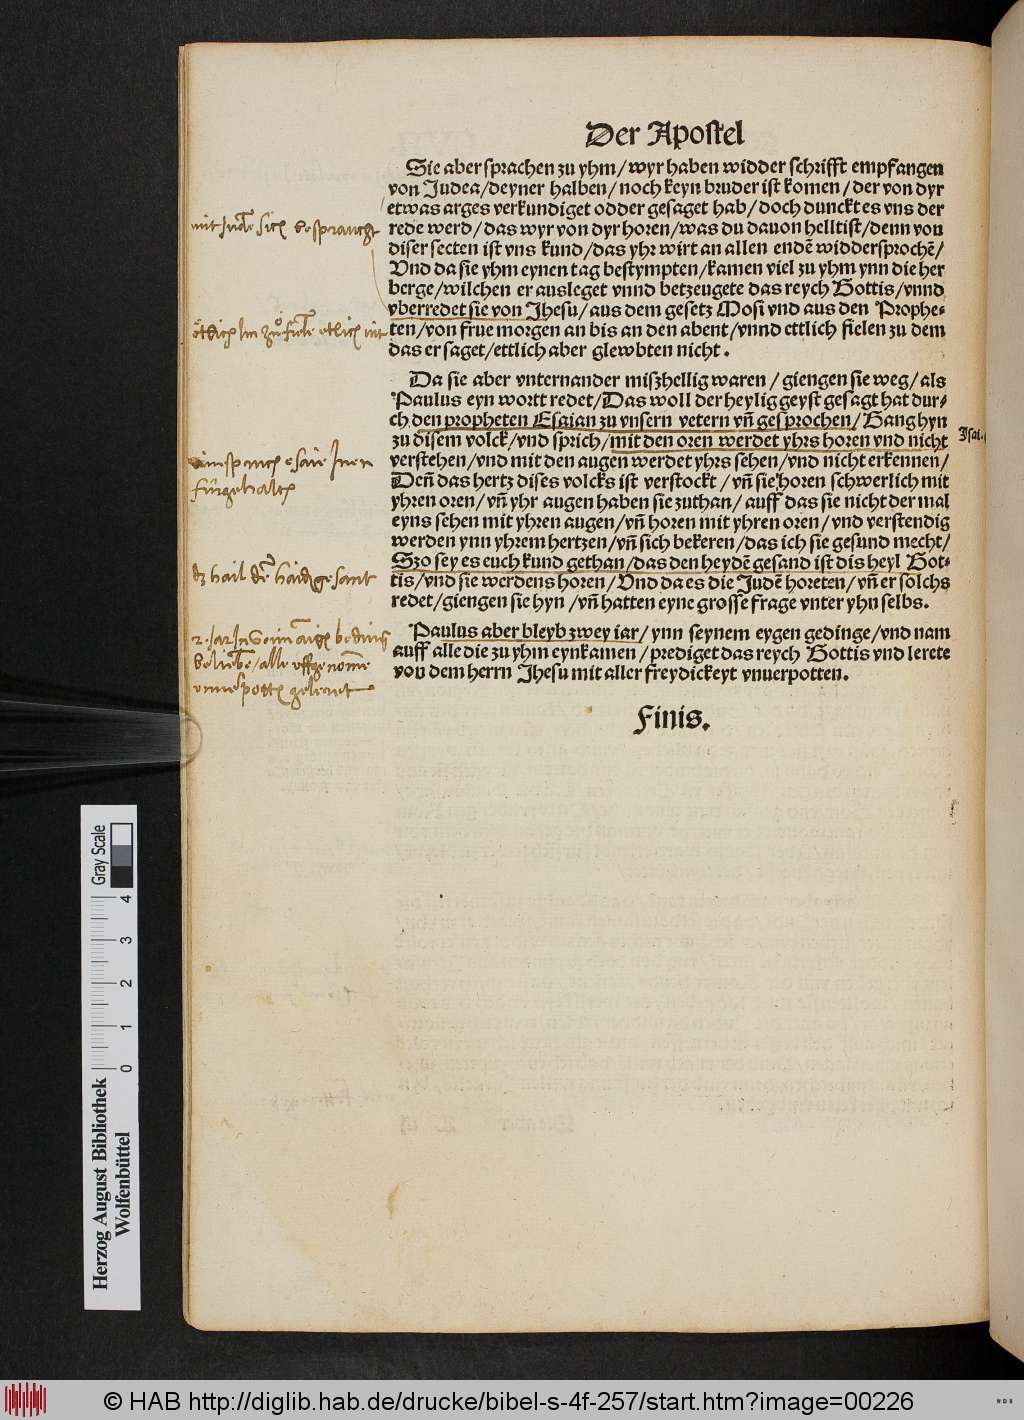 Der Apostel
Sie aber sprachen zu yhm/wyr haben widder schrifft empfangen
von Judea/deyner halben/noch keyn bruder ist komen/der von dyr
etwas arges verkundiget odder gesaget hab/doch dunckt es vns der
rede werd/das wyr von dyr horen/was du dauon helltist/denn von
diser secten ist vns kund/das yhr wirt an allen endē widdersprochē/
Vnd da sie yhm eynen tag bestympten/kamen viel zu yhm ynn die her
berge/wilchen er ausleget vnnd betzeugete das reych Gottis/vnnd
vberredet sie von Jhesu/aus dem gesetz Mosi vnd aus den Prophe-
ten/von frue morgen an bis an den abent/vnnd ettlich fielen zu dem
das er saget/ettlich aber glewbten nicht.
Da sie aber vnternander miszhellig waren/giengen sie weg/als
Paulus eyn wortt redet/Das woll der heylig geyst gesagt hat dur-
ch den propheten Esaian zu vnsern vetern vn̄ gesprochen/Gang hyn
zu disem volck/vnd sprich/mit den oren werdet yhrs horen vnd nicht
Isai.
verstehen/vnd mit den augen werdet yhrs sehen/vnd nicht erkennen/
Den̄ das hertz dises volcks ist verstockt/vn̄ sie horen schwerlich mit
yhren oren/vn̄ yhr augen haben sie zuthan/auff das sie nicht der mal
eyns sehen mit yhren augen/vn̄ horen mit yhren oren/vnd verstendig
werden ynn yhrem hertzen/vn̄ sich bekeren/das ich sie gesund mecht/
Szo sey es euch kund gethan/das den heydē gesand ist dis heyl Got-
tis/vnd sie werdens horen/Vnd da es die Judē horeten/vn̄ er solchs
redet/giengen sie hyn/vn̄ hatten eyne grosse frage vnter yhn selbs.
Paulus aber bleyb zwey iar/ynn seynem eygen gedinge/vnd nam
auff alle die zu yhm eynkamen/prediget das reych Gottis vnd lerete
von dem herrn Jhesu mit aller freydickeyt vnuerpotten.
Finis.
mit sich
esaie
hail
alle
Gray Scale
4
3
2
1
0
Herzog August Bibliothek
Wolfenbüttel
© HAB http://diglib.hab.de/drucke/bibel-s-4f-257/start.htm?image=00226